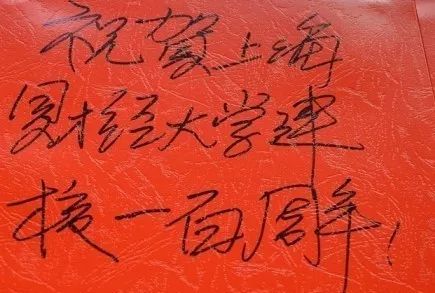 祝贺上海
财经大学建
校一百周年！